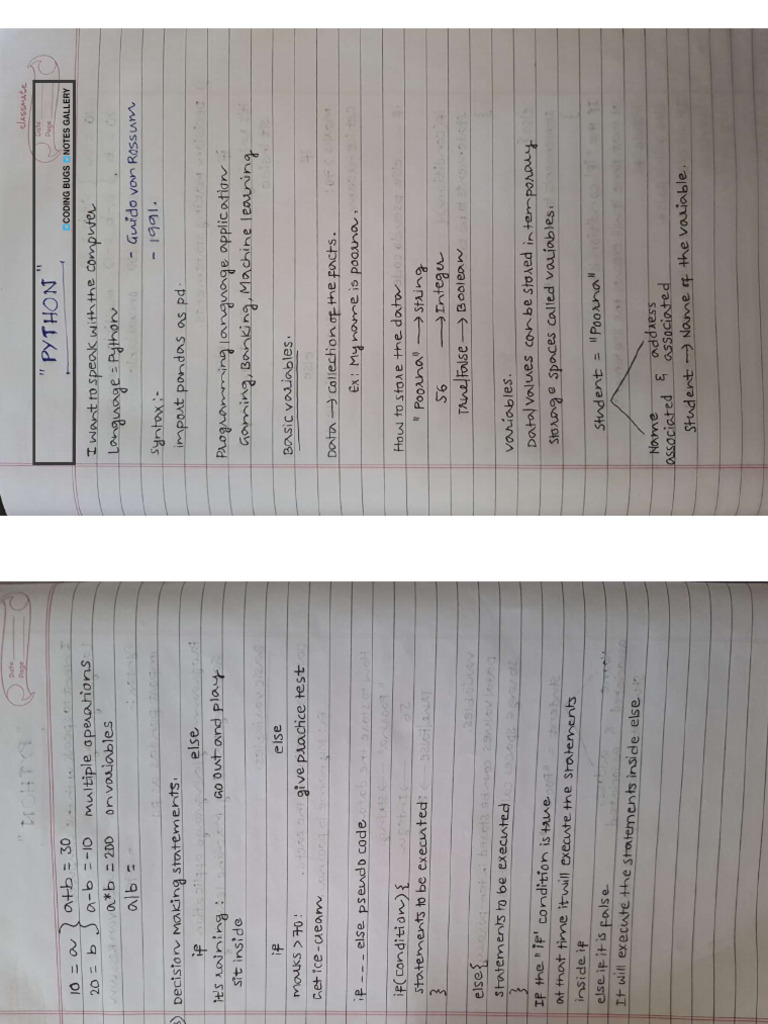 classmate
Date
Page
"PYTHON"
CODING BUGS NOTES GALLERY
I want to speak with the computer
Language = Python
- Guido van Rossum
- 1991.
Syntax:-
import pandas as pd.
Programming language application
Gaming, Banking, Machine learning
Basic variables.
Data → Collection of the facts.
Ex: My name is poorna.
How to store the data
"Poorna" → String
56 → Integer
True/False → Boolean
Variables.
Data values can be stored in temporary
storage spaces called variables.
Student = "Poorna"
Name & address
associated associated
Student → Name of the variable.
Date
Page
10 = a } a+b = 30
20 = b } a-b = -10 multiple operations
a*b = 200 on variables
a/b =
Decision making statements.
if else
it's raining : go out and play
sit inside
if else
marks > 70: give practice test
Get ice-cream
if --- else pseudo code
if (condition) {
statements to be executed
}
else{
statements to be executed
}
If the "if' condition is true
at that time it will execute the statements
inside if
else if it is false
It will execute the statements inside else